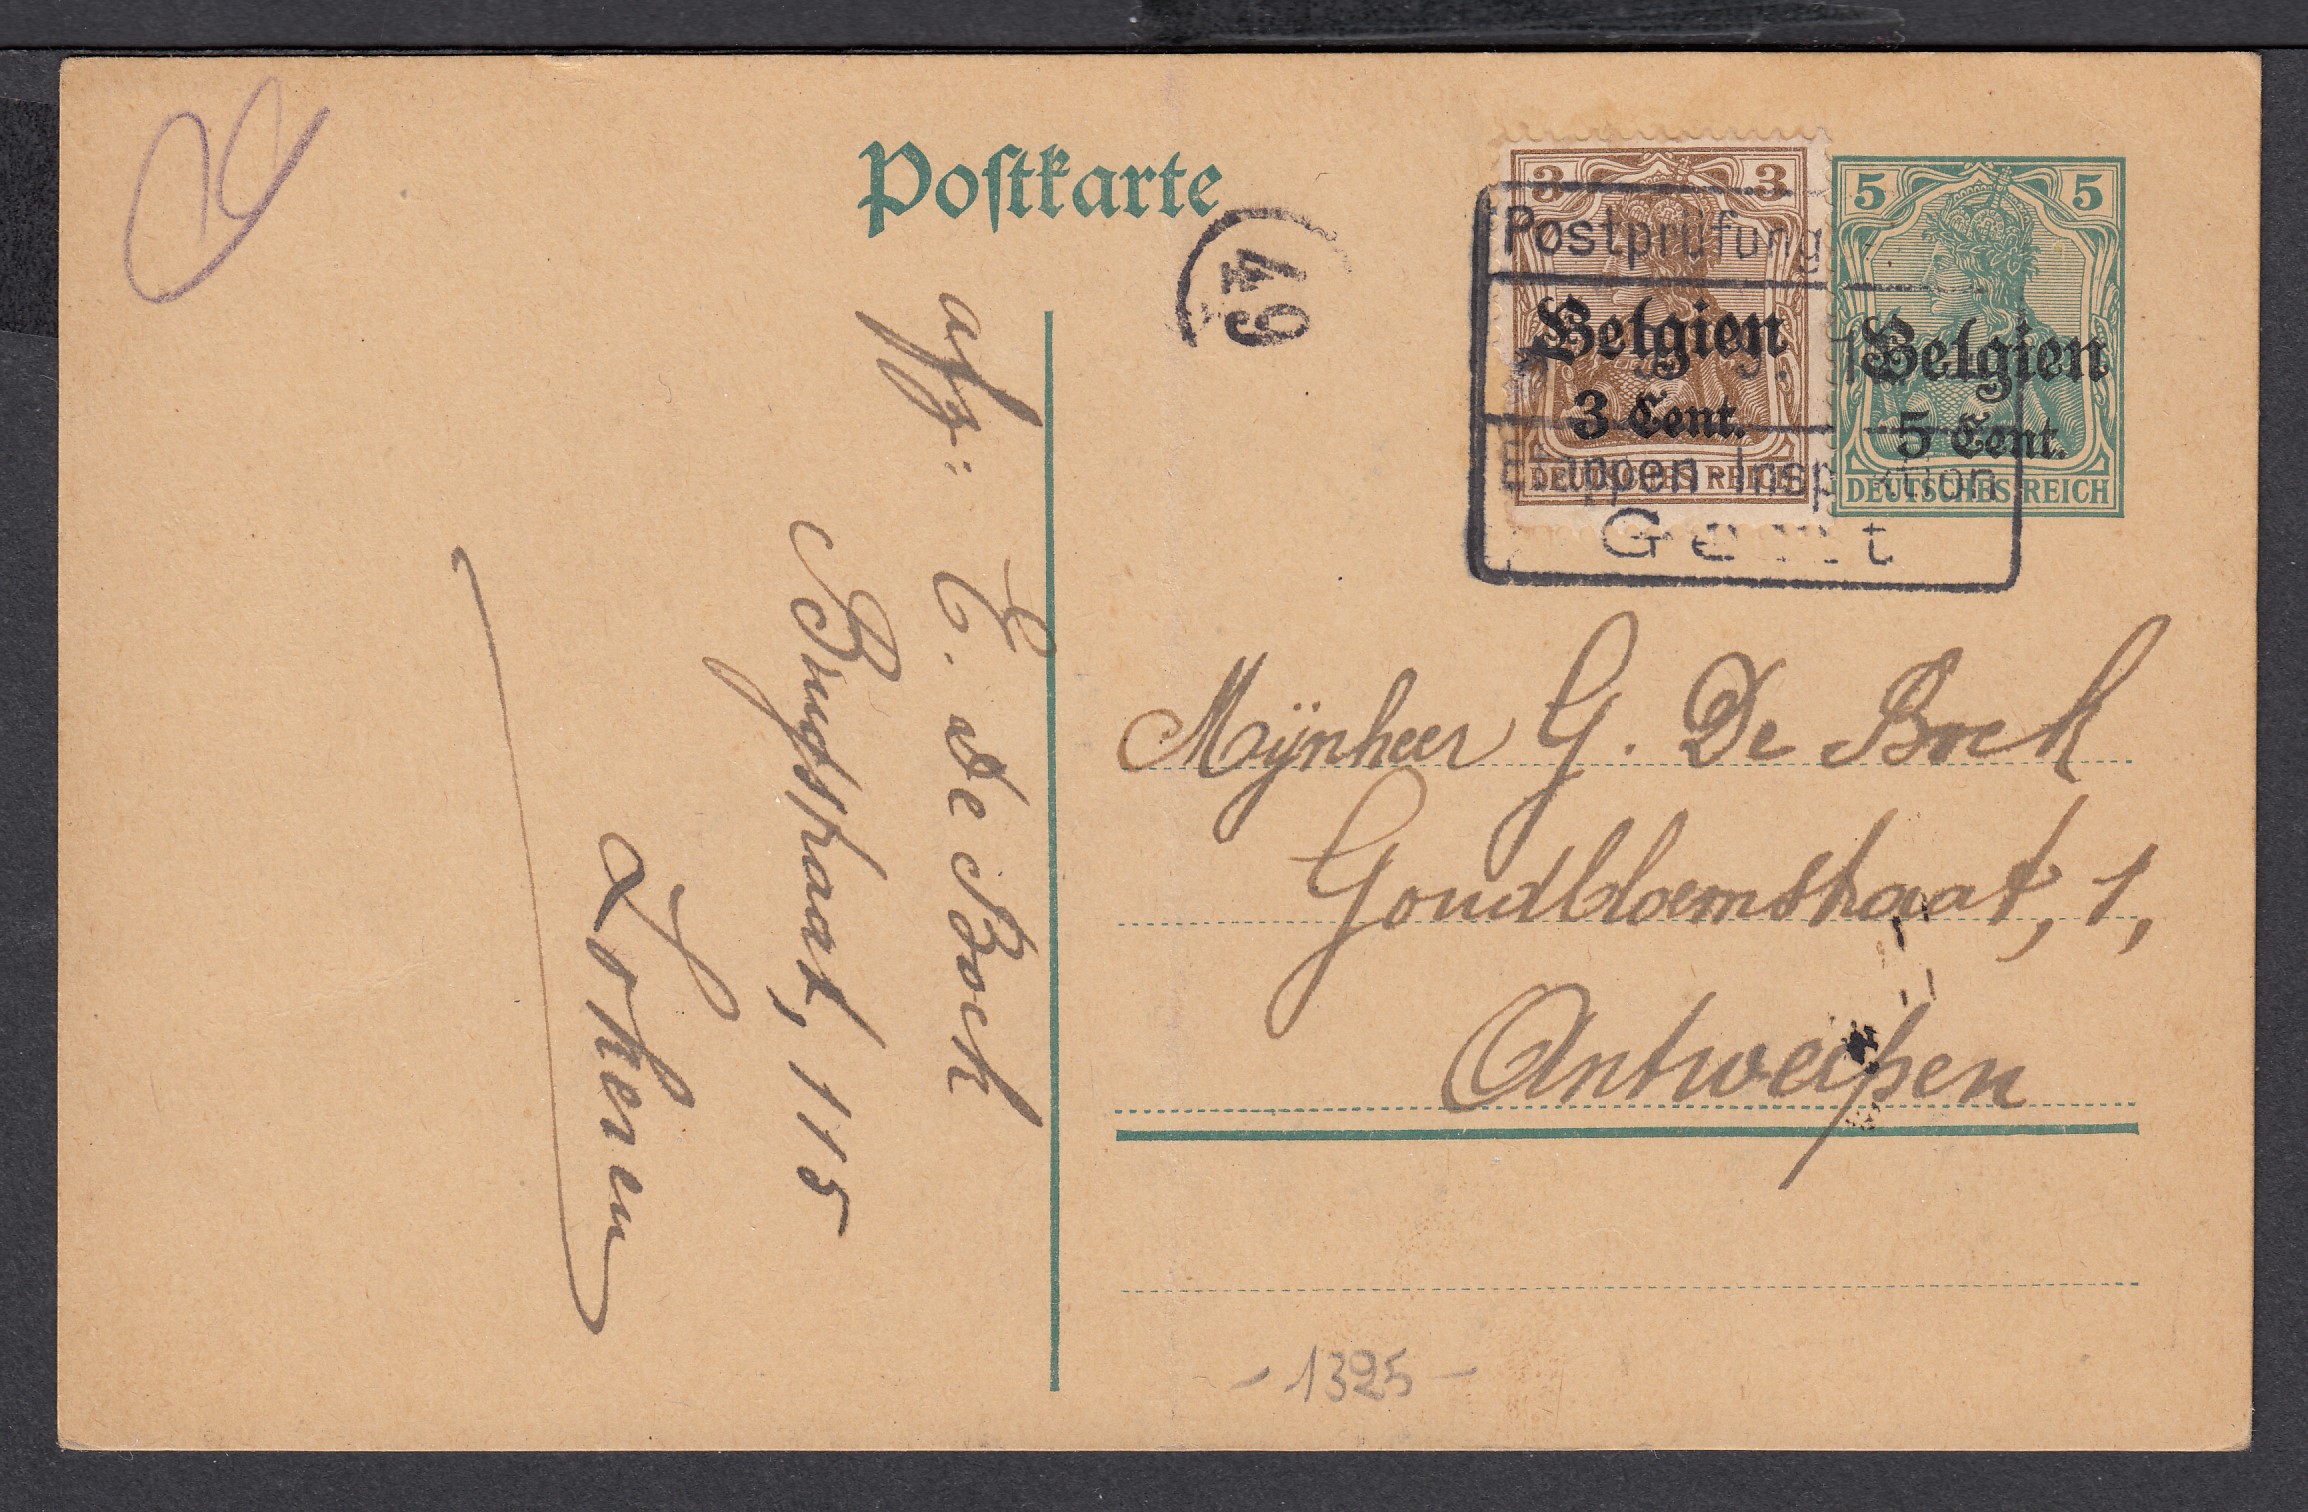 Postkarte
3 3
Belgien
3 Cent.
DEUTSCHES REICH
5 5
Belgien
5 Cent.
DEUTSCHES REICH
Postprüfung
Etappen-Inspektion
Gent
49
Mijnheer G. De Bock
Goudbloemstraat, 1,
Antwerpen
afz:
E. De Bock
Brugstraat, 115
Lokeren
- 1325 -